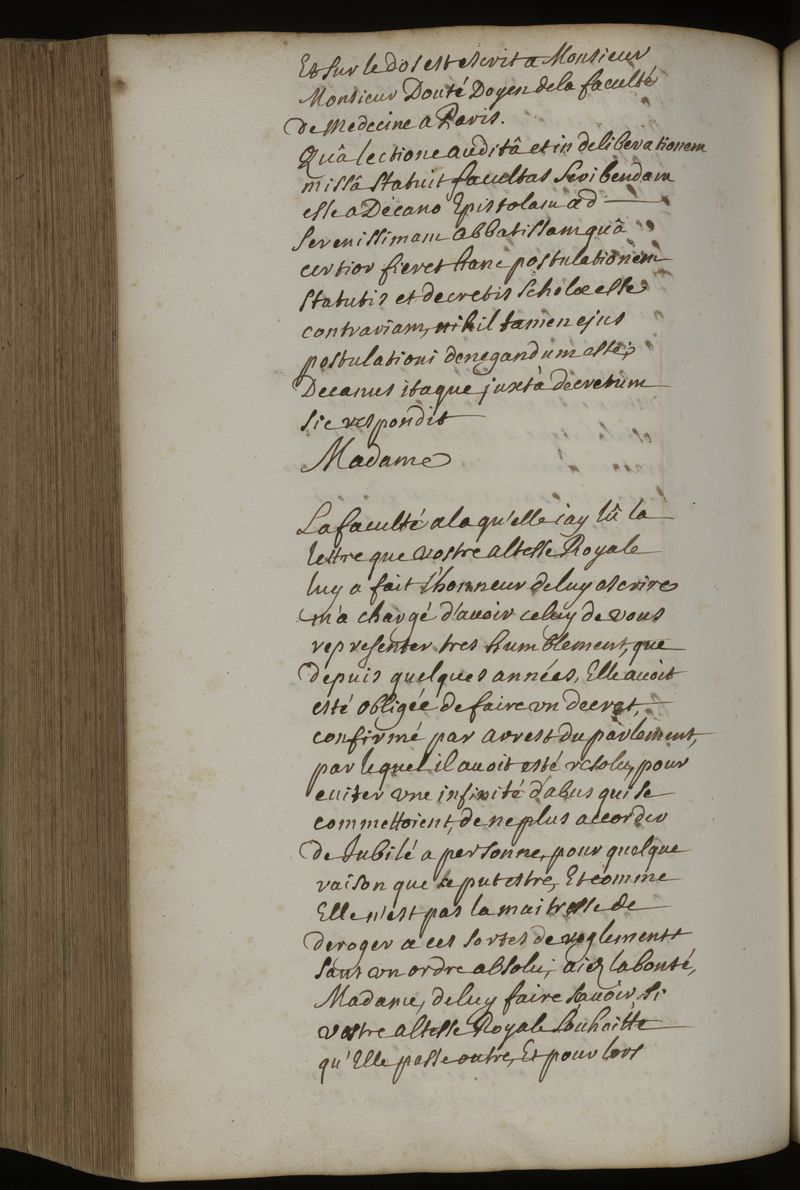 Et sur le dos est escrit a Monsieur
Monsieur Douté Doyen de la faculté
de Medecine a Paris.
Quâ lectione auditâ et in deliberationem
missâ statuit facultas scribendam
esse a Decano Epistolam ad
serenissimam abbatissam quâ
certior fieret hanc postulationem
statutis et decretis scholæ esse
contrariam, nihil tamen ejus
postulationi denegandum esse;
Decanus itaque juxtà decretum
sic respondit
Madame
La faculté a laqu'elle jay lû la
lettre que vostre altesse Royale
luy a fait l'honneur de luy escrire
m'a chargé d'avoir celuy de vous
representer tres humblement, que
depuis quelques années, Elle avoit
esté obligée de faire un decret,
confirmé par arrest du parlement,
par lequel il avoit esté resolu, pour
euiter une infinité d'abus qui se
commettoient, de ne plus accorder
de Jubilé a personne, pour quelque
raison que ce put estre, Et comme
Elle n'est pas la maitresse de
deroger a ces sortes de reglements
sans un ordre absolu, aiez la bonté,
Madame, de luy faire sçavoir, si
vostre altesse Royale souhaitte
qu'Elle passe outre, Et pour lors